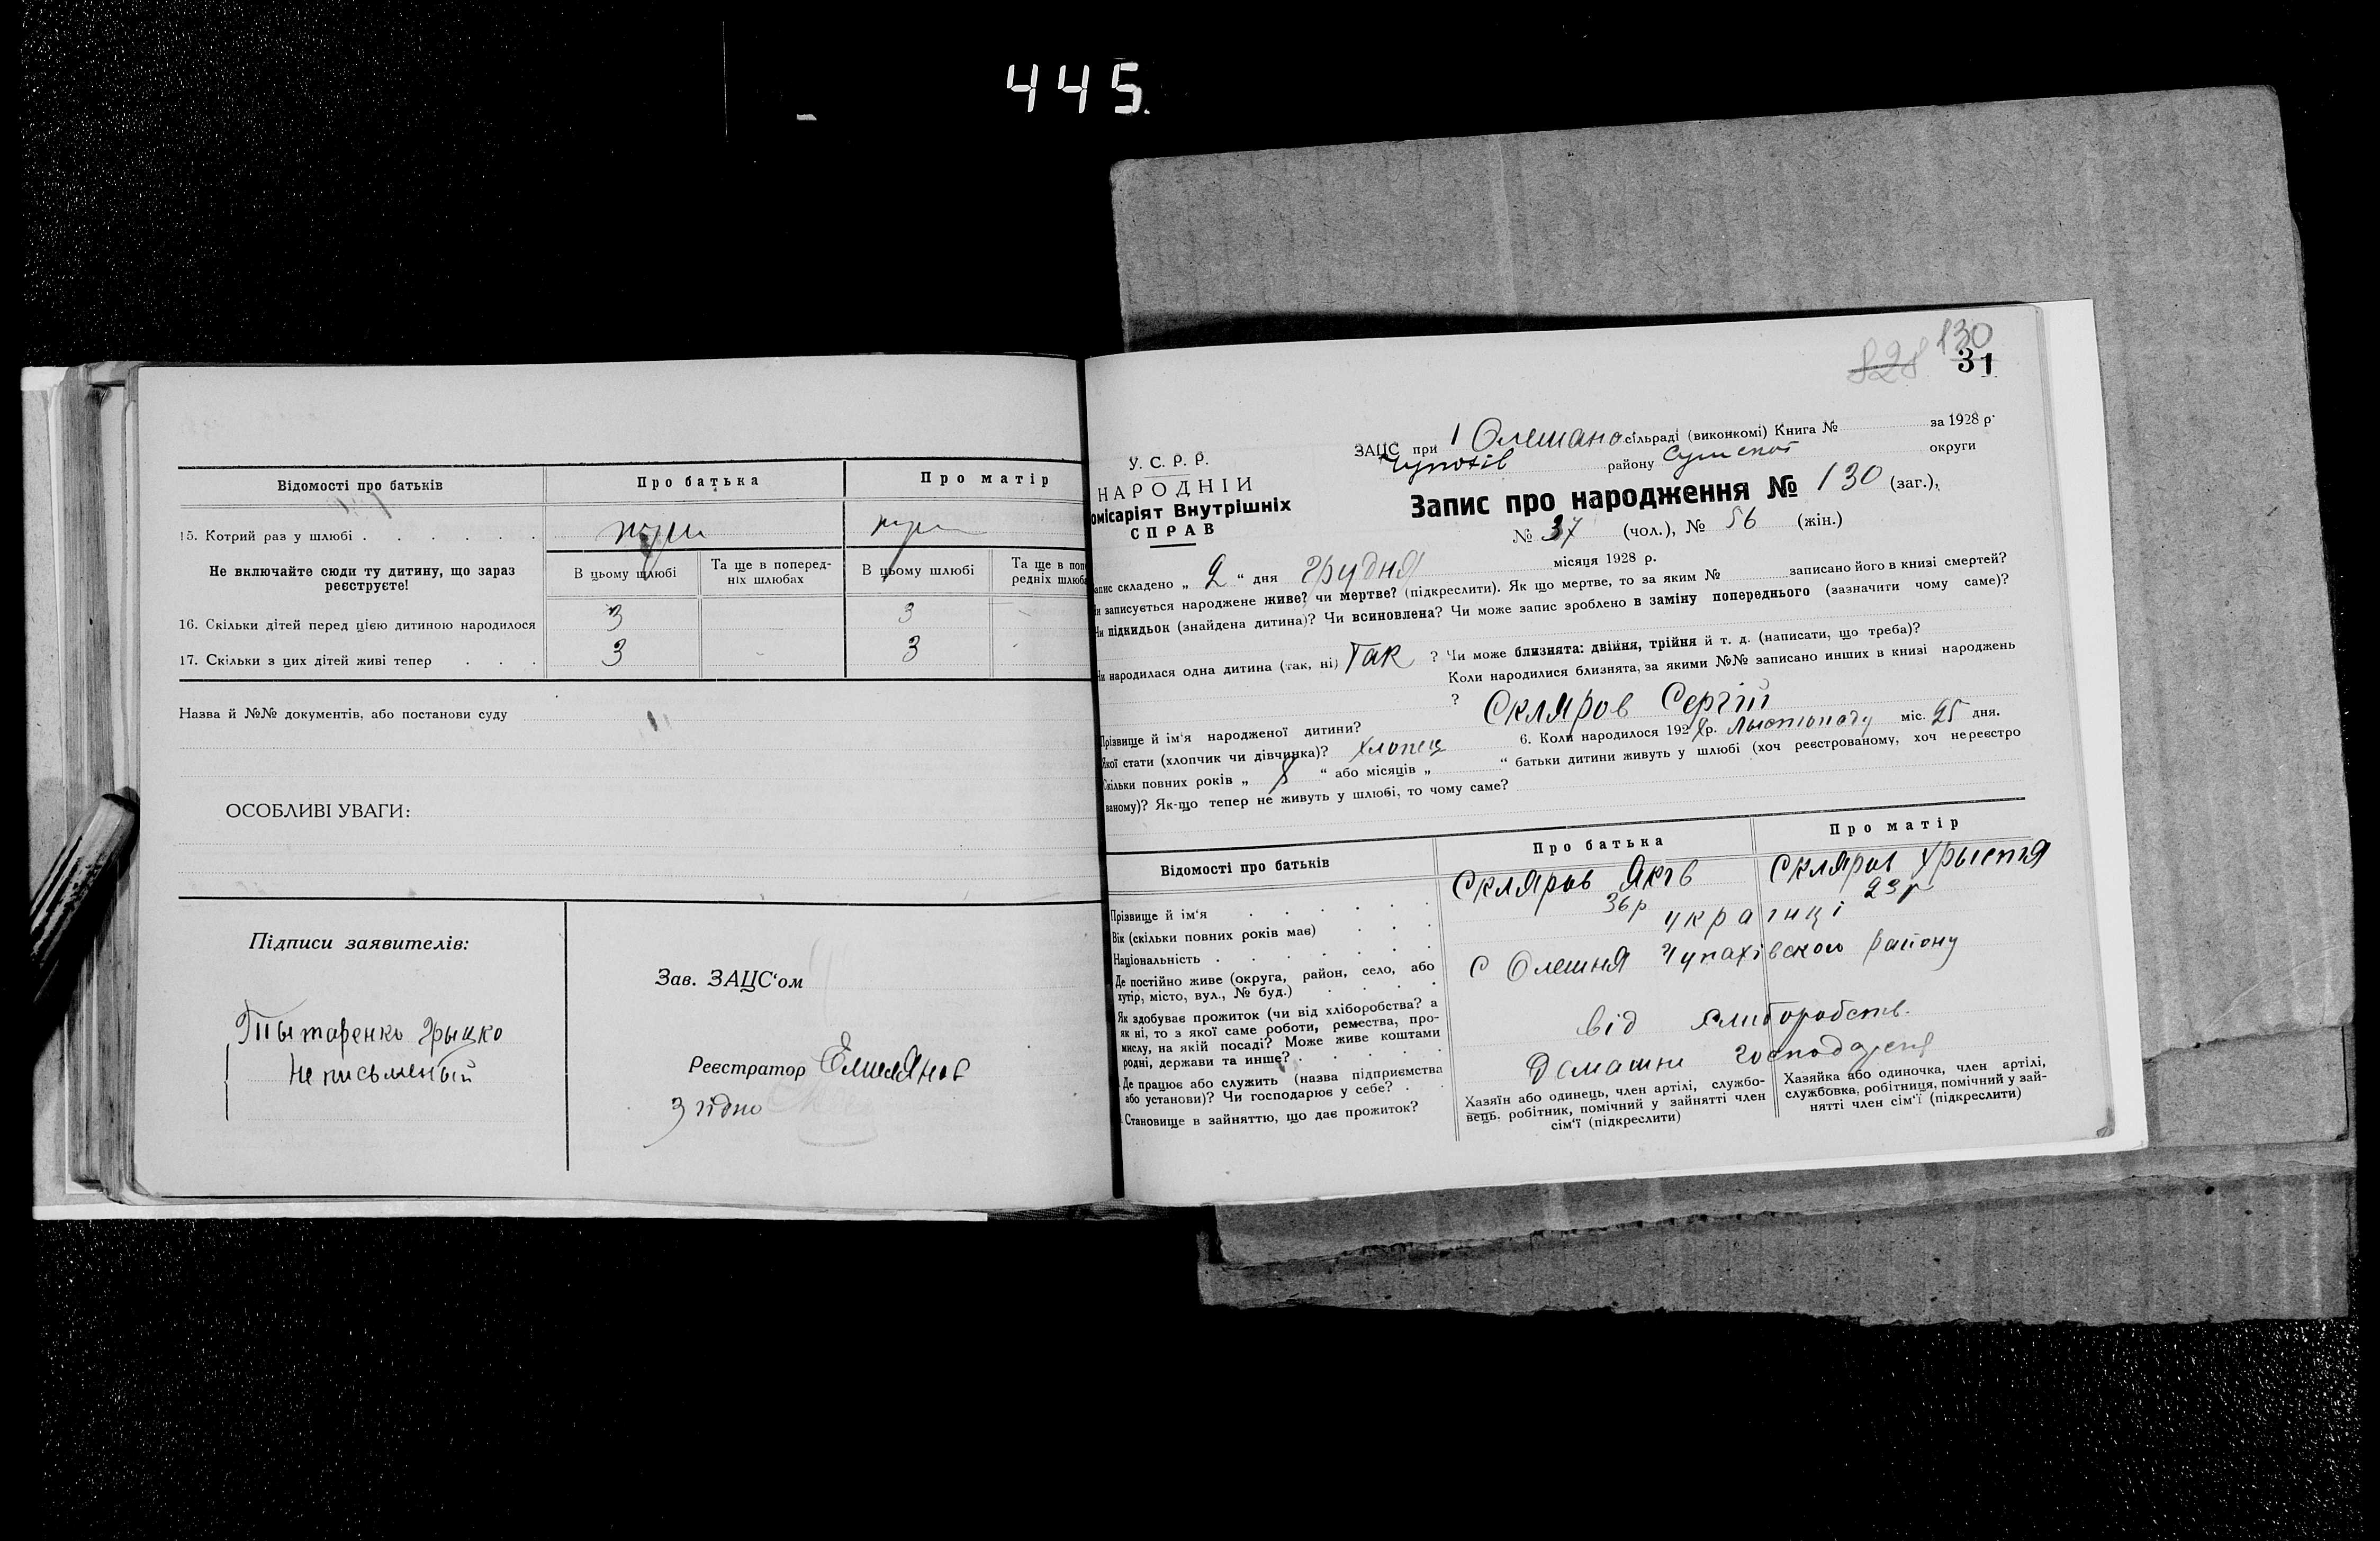 445.
Відомості про батьків
Про батька
Про матір
15. Котрий раз у шлюбі . . . . . .
Не включайте сюди ту дитину, що зараз
реєструєте!
В цьому шлюбі
Та ще в поперед-
ніх шлюбах
В цьому шлюбі
Та ще в попе
редніх шлюба
16. Скільки дітей перед цією дитиною народилося
3
3
17. Скільки з цих дітей живі тепер . . .
3
-
3
-
Назва й №№ документів, або постанови суду
ОСОБЛИВІ УВАГИ:
Підписи заявителів:
Тытаренко Грыцко
Не письменый
Зав. ЗАЦС'ом
Реєстратор Емелянов
Згідно
828 130
31
У. С. Р. Р.
НАРОДНІЙ
омісаріят Внутрішніх
СПРАВ
ЗАЦС при 1 Олешано сільраді (виконкомі) Книга № за 1928 р.
Чупахів району Сумской округи
Запис про народження № 130 (заг.),
№ 37 (чол.), № 56 (жін.)
апис складено „ 2 “ дня Грудня місяця 1928 р.
и записується народжене живе? чи мертве? (підкреслити). Як що мертве, то за яким № записано його в книзі смертей?
Чи підкидьок (знайдена дитина)? Чи всиновлена? Чи може запис зроблено в заміну попереднього (зазначити чому саме)?
и народилася одна дитина (так, ні) Так ? Чи може близнята: двійня, трійня й т. д. (написати, що треба)?
Коли народилися близнята, за якими №№ записано инших в книзі народжень
?
Прізвище й ім'я народженої дитини? Скляров Сергій
Якої стати (хлопчик чи дівчинка)? хлопец 6. Коли народилося 1928 р. Лыстопаду міс. 25 дня.
Скільки повних років „ 8 “ або місяців „ “ батьки дитини живуть у шлюбі (хоч реєстрованому, хоч нереєстро
ваному)? Як-що тепер не живуть у шлюбі, то чому саме?
Відомості про батьків
Про батька
Про матір
Прізвище й ім'я . . . . . .
Скляров Яків
Скляров Хрыстя
Вік (скільки повних років має) . . .
36р
23р
Національність . . . . . . .
українці
Де постійно живе (округа, район, село, або
хутір, місто, вул., № буд.) . . . .
С Олешня Чупахівского району
Як здобуває прожиток (чи від хліборобства? а
як ні, то з якої саме роботи, ремества, про-
мислу, на якій посаді? Може живе коштами
родні, держави та инше? . . . . .
від хлиборобств.
Де працює або служить (назва підприємства
або установи)? Чи господарює у себе? . .
Домашне
Становище в зайняттю, що дає прожиток?
Хазяїн або одинець, член артілі, службо-
вець. робітник, помічний у зайнятті член
сім'ї (підкреслити)
Хазяйка або одиночка, член артілі,
службовка, робітниця, помічний у зай-
нятті член сім'ї (підкреслити)